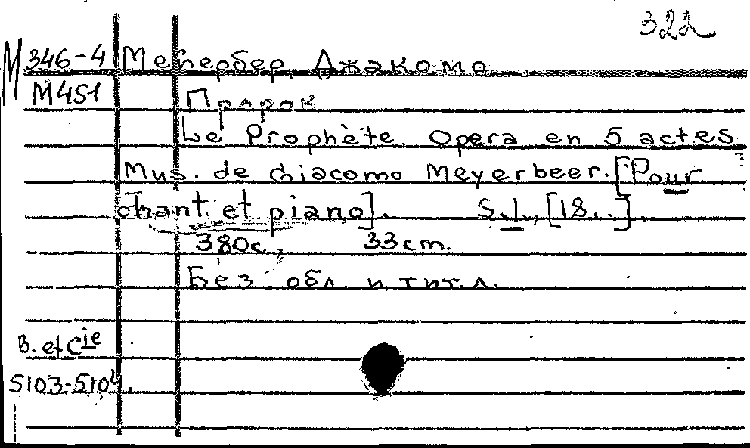 322
М 346-4 Мейербер, Джакомо
М451
Пророк
Le Prophète Opera en 5 actes
Mus. de Giacomo Meyerbeer. [Pour
chant et piano]. S.l., [18..].
380с., 33cm.
Без обл. и тит. л.
B. et Cie
5103-5104.